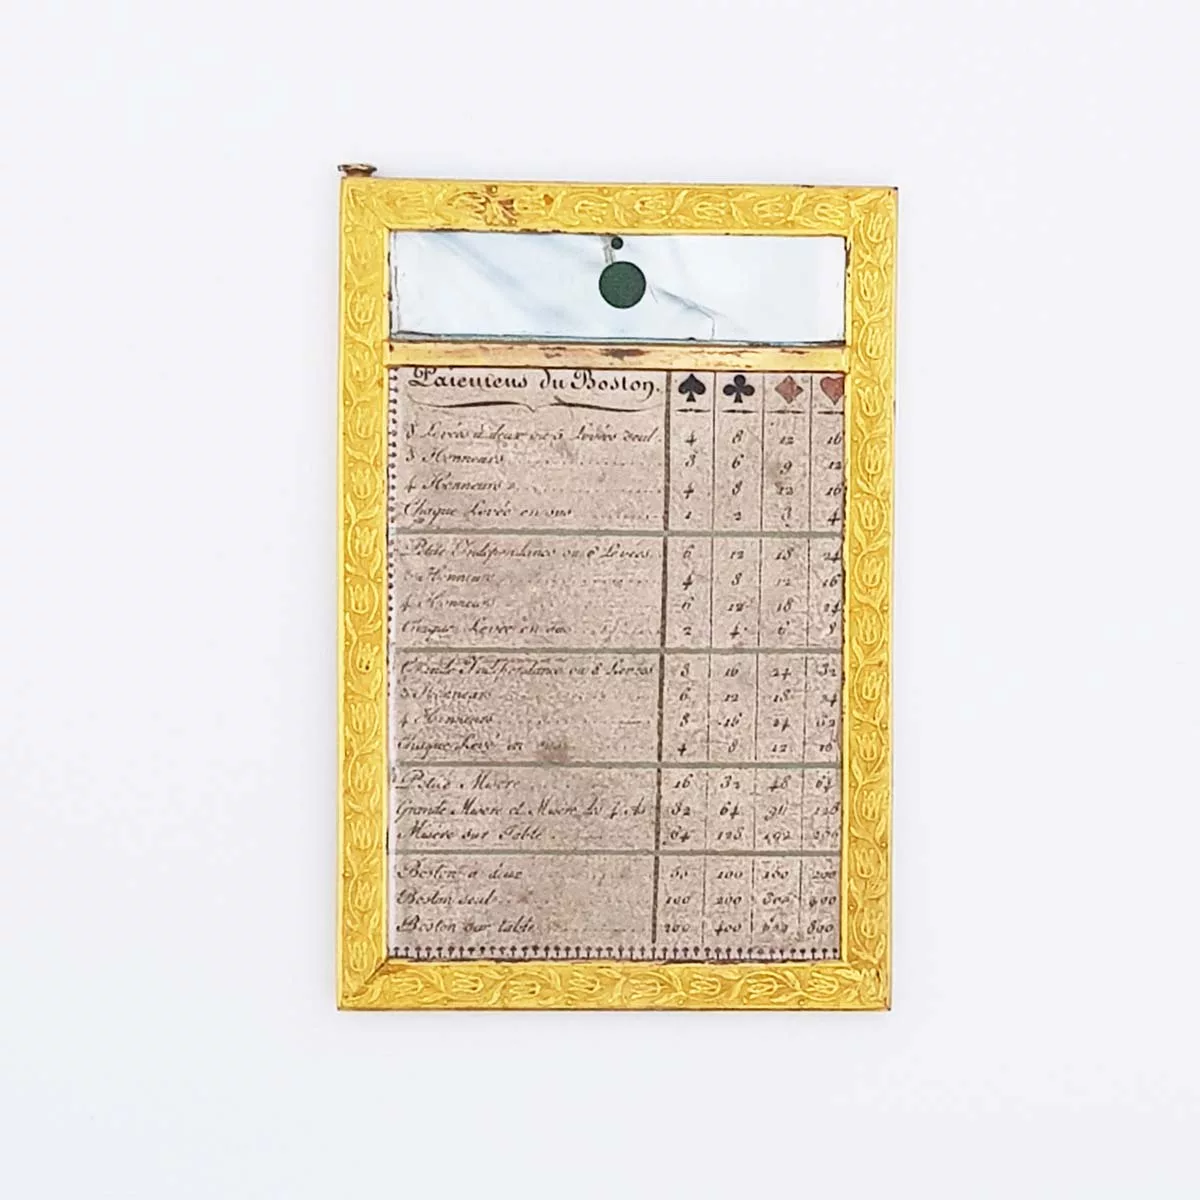 Paiemens du Boston. ♠ ♣ ♦ ♥
8 Levées à deux ou 5 Levées seul. 4 8 12 16
3 Honneurs 3 6 9 12
4 Honneurs 4 8 12 16
Chaque Levée en sus 1 2 3 4
Petite Indépendance ou 6 Levées 6 12 18 24
3 Honneurs 4 8 12 16
4 Honneurs 6 12 18 24
Chaque Levée en sus 2 4 6 8
Grande Indépendance ou 8 Levées 8 16 24 32
3 Honneurs 6 12 18 24
4 Honneurs 8 16 24 32
Chaque Levé en sus 4 8 12 16
Petite Misere 16 32 48 64
Grande Misere et Misere des 4 As 32 64 96 128
Misère sur Table 64 128 192 256
Boston à deux 50 100 150 200
Boston seul 100 200 300 400
Boston sur table 200 400 600 800